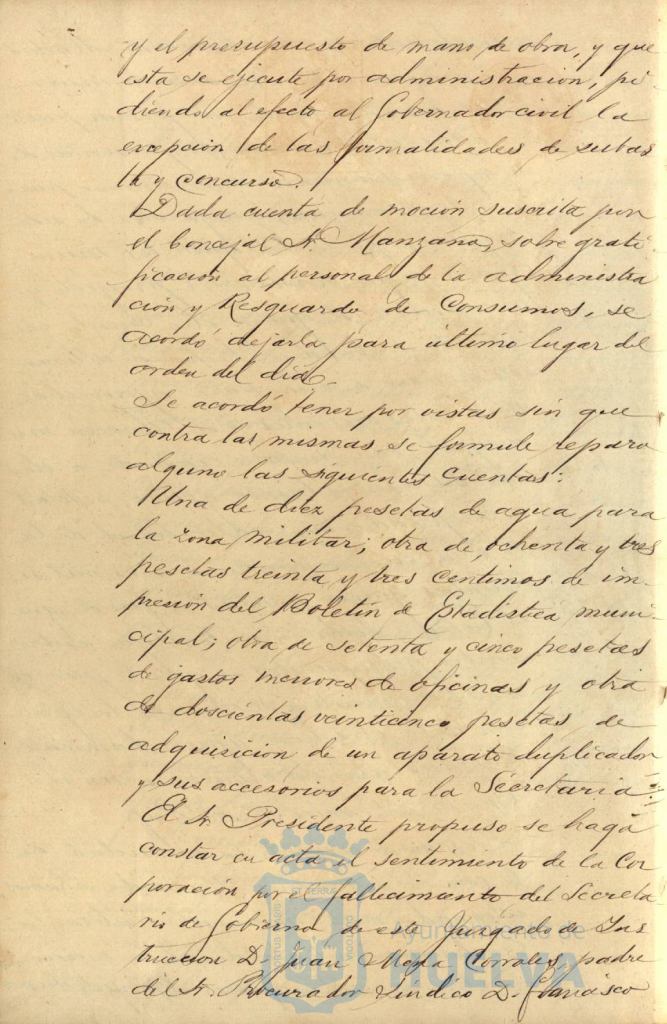 y el presupuesto de mano de obra, y que
esta se ejecute por administracion, pi
diendo al efecto al Gobernador civil la
excepción de las formalidades de subas
ta y concurso.
Dada cuenta de moción suscrita por
el Concejal Sr. Manzano, sobre grati
ficacion al personal de la administra
ción y Resguardo de Consumos, se
acordó dejarla para último lugar del
orden del día.
Se acordó tener por vistas sin que
contra las mismas se formule reparo
alguno las siguientes cuentas:
Una de diez pesetas de agua para
la zona militar; otra de ochenta y tres
pesetas treinta y tres centimos de im-
presión del Boletín de Estadistica muni-
cipal; otra de setenta y cinco pesetas
de gastos menores de oficinas y otra
de doscientas veinticinco pesetas de
adquisición de un aparato duplicador
y sus accesorios para la Secretaria.
El Sr Presidente propuso se haga
constar en acta el sentimiento de la Cor
poración por el fallecimiento del Secreta
rio de Gobierno de este Juzgado de Ins
truccion D. Juan Moya Corrales, padre
del Sr. Procurador Sindico D. Francisco
Ayuntamiento de
HUELVA